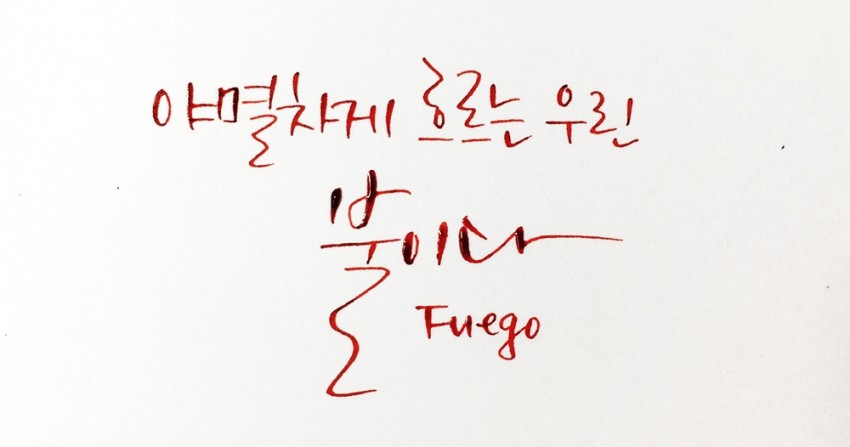 야멸차게 흐르는 우린
불이다
Fuego